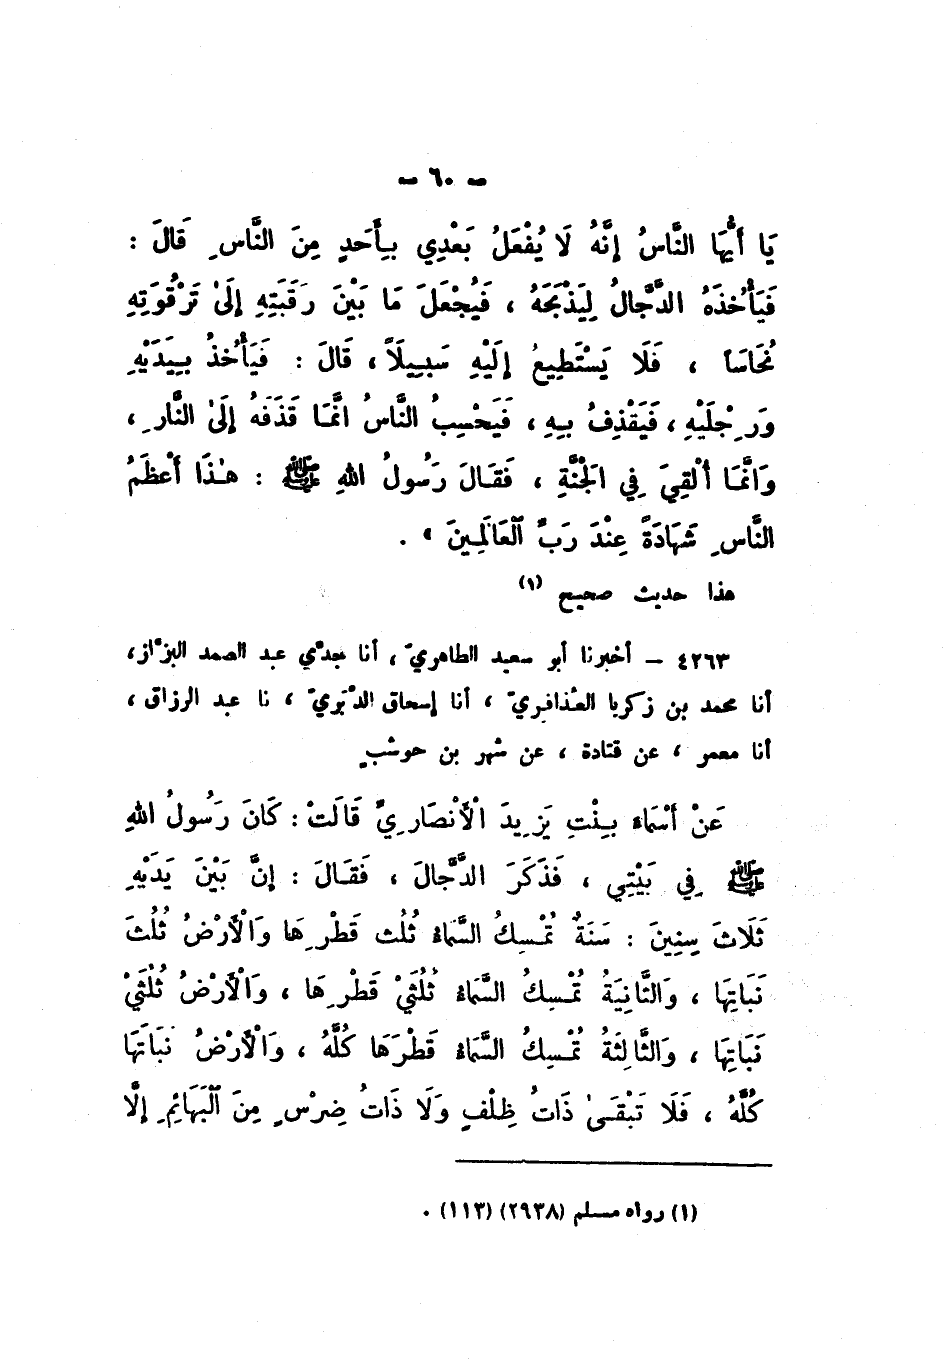 - ٦٠ -
يَا أَيُّهَا النَّاسُ إِنَّهُ لَا يُفْعَلُ بَعْدِي بِأَحَدٍ مِنَ النَّاسِ قَالَ :
فَيَأْخُذُهُ الدَّجَّالُ لِيَذْبَحَهُ ، فَيُجْعَلَ مَا بَيْنَ رَقَبَتِهِ إِلَىٰ تَرْقُوَتِهِ
نُحَاسَاً ، فَلَا يَسْتَطِيعُ إِلَيْهِ سَبِيلَاً ، قَالَ : فَيَأْخُذُ بِيَدَيْهِ
وَرِجْلَيْهِ ، فَيَقْذِفُ بِهِ ، فَيَحْسِبُ النَّاسُ انَّمَا قَذَفَهُ إِلَىٰ النَّارِ ،
وَانَّمَا أُلْقِيَ فِي الْجَنَّةِ ، فَقَالَ رَسُولُ اللهِ ﷺ : هٰذَا أَعْظَمُ
النَّاسِ شَهَادَةً عِنْدَ رَبِّ الْعَالَمِينَ » .
هذا حديث صحيح (١)
٤٢٦٣ - أخبرنا أبو سعيد الطاهريّ ، أنا جدّي عبد الصمد البزّاز ،
أنا محمد بن زكريا العُذافريّ ، أنا إسحاق الدّبَريّ ، نا عبد الرزاق ،
أنا معمر ، عن قتادة ، عن شهر بن حوشبٍ
عَنْ أَسْمَاءَ بِنْتِ يَزِيدَ الْأَنْصَارِيِّ قَالَتْ : كَانَ رَسُولُ اللهِ
ﷺ فِي بَيْتِي ، فَذَكَرَ الدَّجَّالَ ، فَقَالَ : إِنَّ بَيْنَ يَدَيْهِ
ثَلَاثَ سِنِينَ : سَنَةٌ تُمْسِكُ السَّمَاءُ ثُلُثَ قَطْرِهَا وَالْأَرْضُ ثُلُثَ
نَبَاتِهَا ، وَالثَّانِيَةُ تُمْسِكُ السَّمَاءُ ثُلُثَيْ قَطْرِهَا ، وَالْأَرْضُ ثُلُثَيْ
نَبَاتِهَا ، وَالثَّالِثَةُ تُمْسِكُ السَّمَاءُ قَطْرَهَا كُلَّهُ ، وَالْأَرْضُ نَبَاتَهَا
كُلَّهُ ، فَلَا تَبْقَىٰ ذَاتُ ظِلْفٍ وَلَا ذَاتُ ضِرْسٍ مِنَ الْبَهَائِمِ إِلَّا
(١) رواه مسلم (٢٩٣٨) (١١٣) .